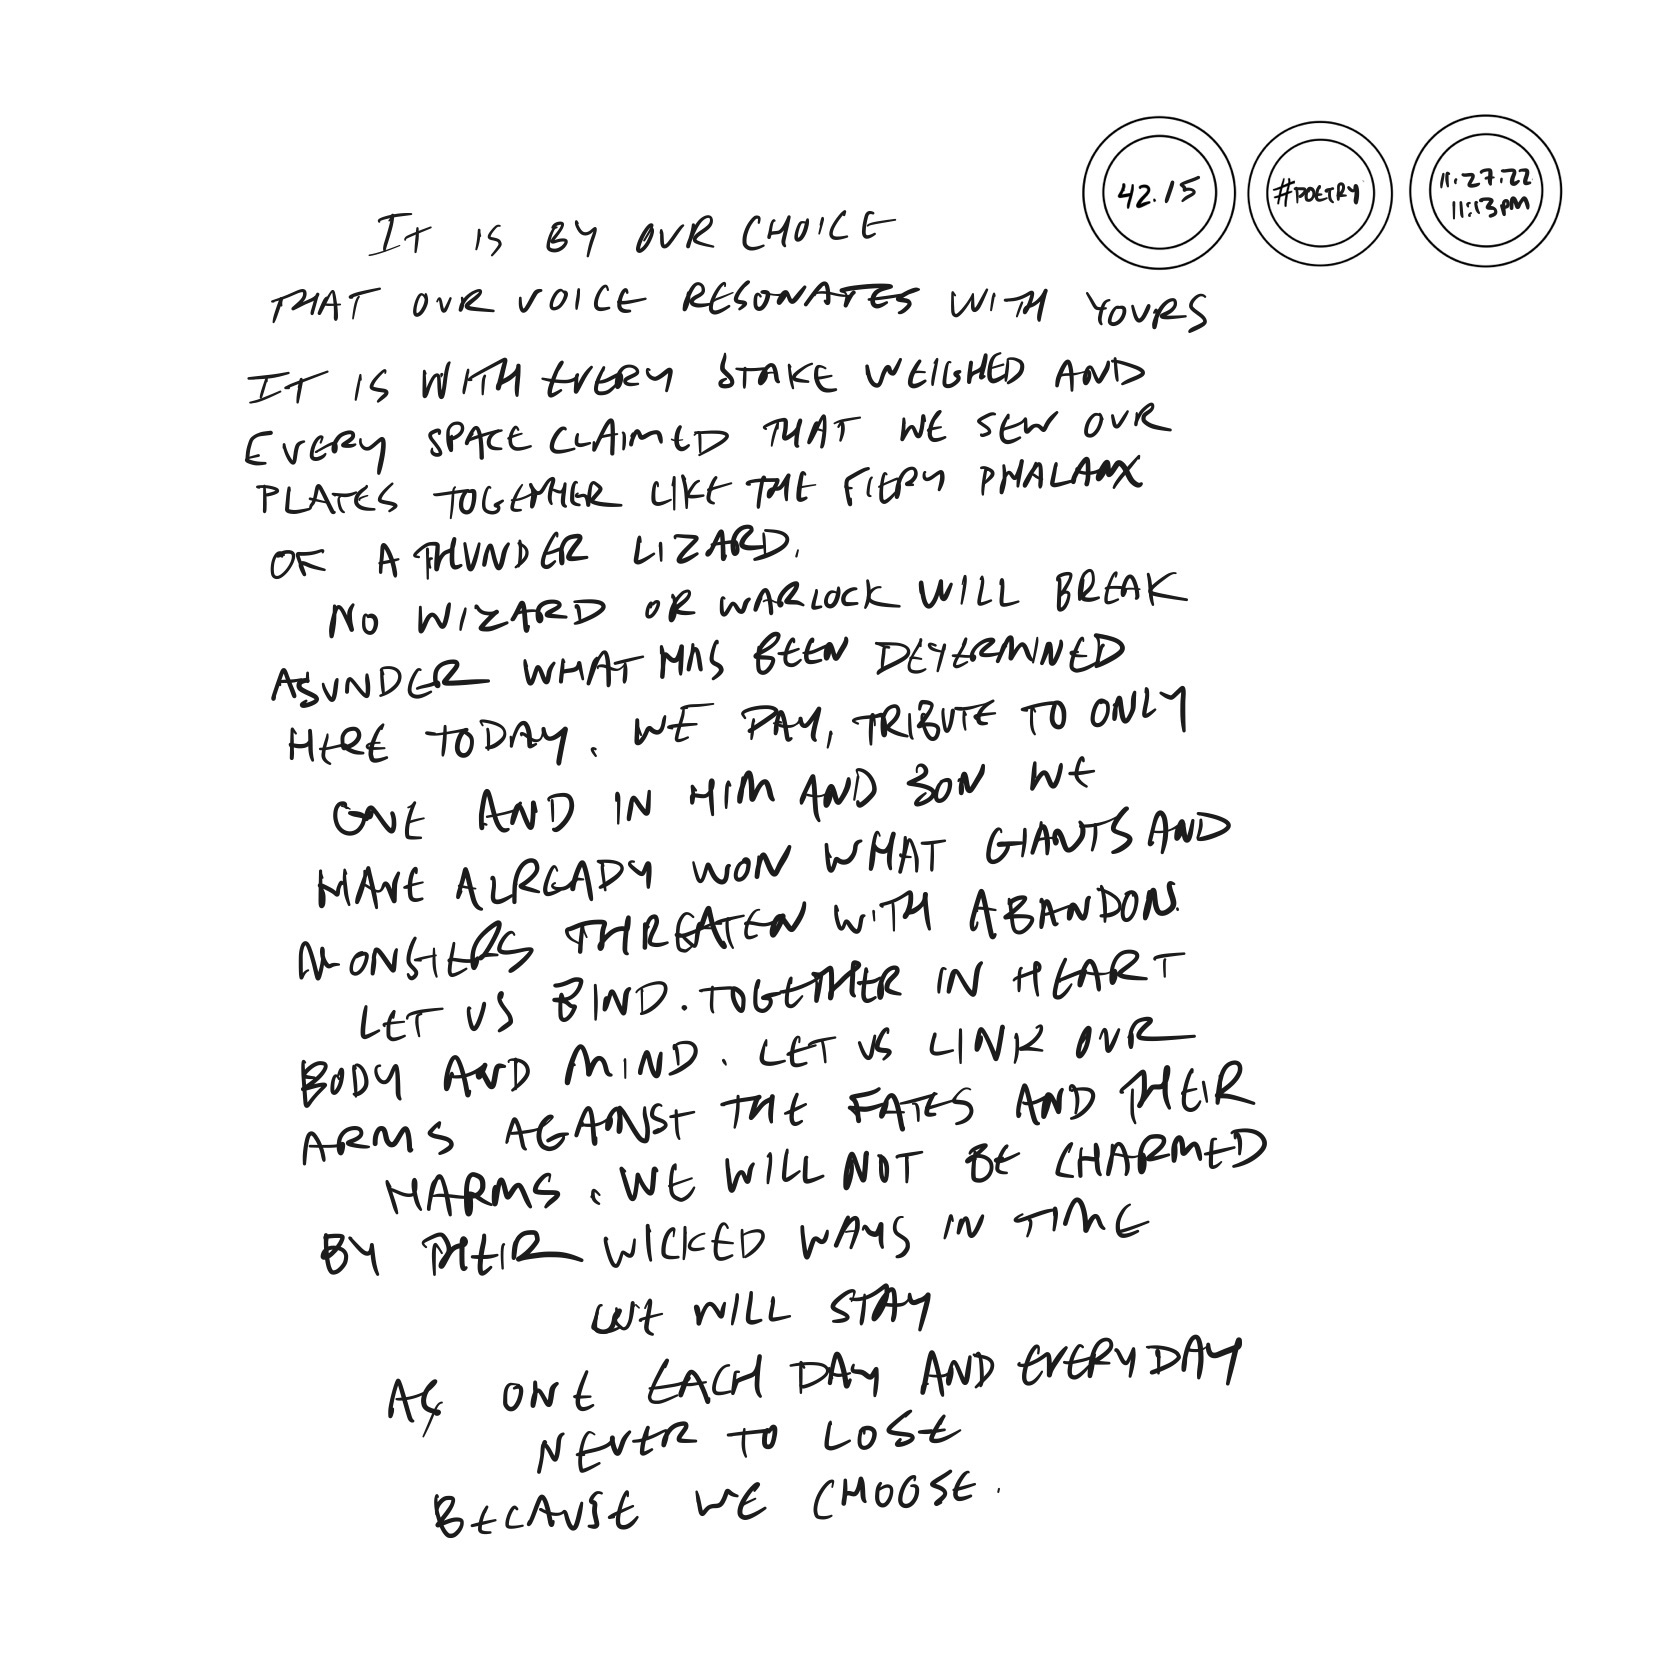 42.15
#POETRY
11.27.22
11:13PM
IT IS BY OUR CHOICE
THAT OUR VOICE RESONATES WITH YOURS
IT IS WITH EVERY STAKE WEIGHED AND
EVERY SPACE CLAIMED THAT WE SEW OUR
PLATES TOGETHER LIKE THE FIERY PHALANX
OF A THUNDER LIZARD.
NO WIZARD OR WARLOCK WILL BREAK
ASUNDER WHAT HAS BEEN DETERMINED
HERE TODAY. WE PAY, TRIBUTE TO ONLY
ONE AND IN HIM AND SON WE
HAVE ALREADY WON WHAT GIANTS AND
MONSTERS THREATEN WITH ABANDON.
LET US BIND. TOGETHER IN HEART
BODY AND MIND. LET US LINK OUR
ARMS AGAINST THE FATES AND THEIR
HARMS. WE WILL NOT BE CHARMED
BY THEIR WICKED WAYS IN TIME
WE WILL STAY
AS ONE EACH DAY AND EVERYDAY
NEVER TO LOSE
BECAUSE WE CHOOSE.